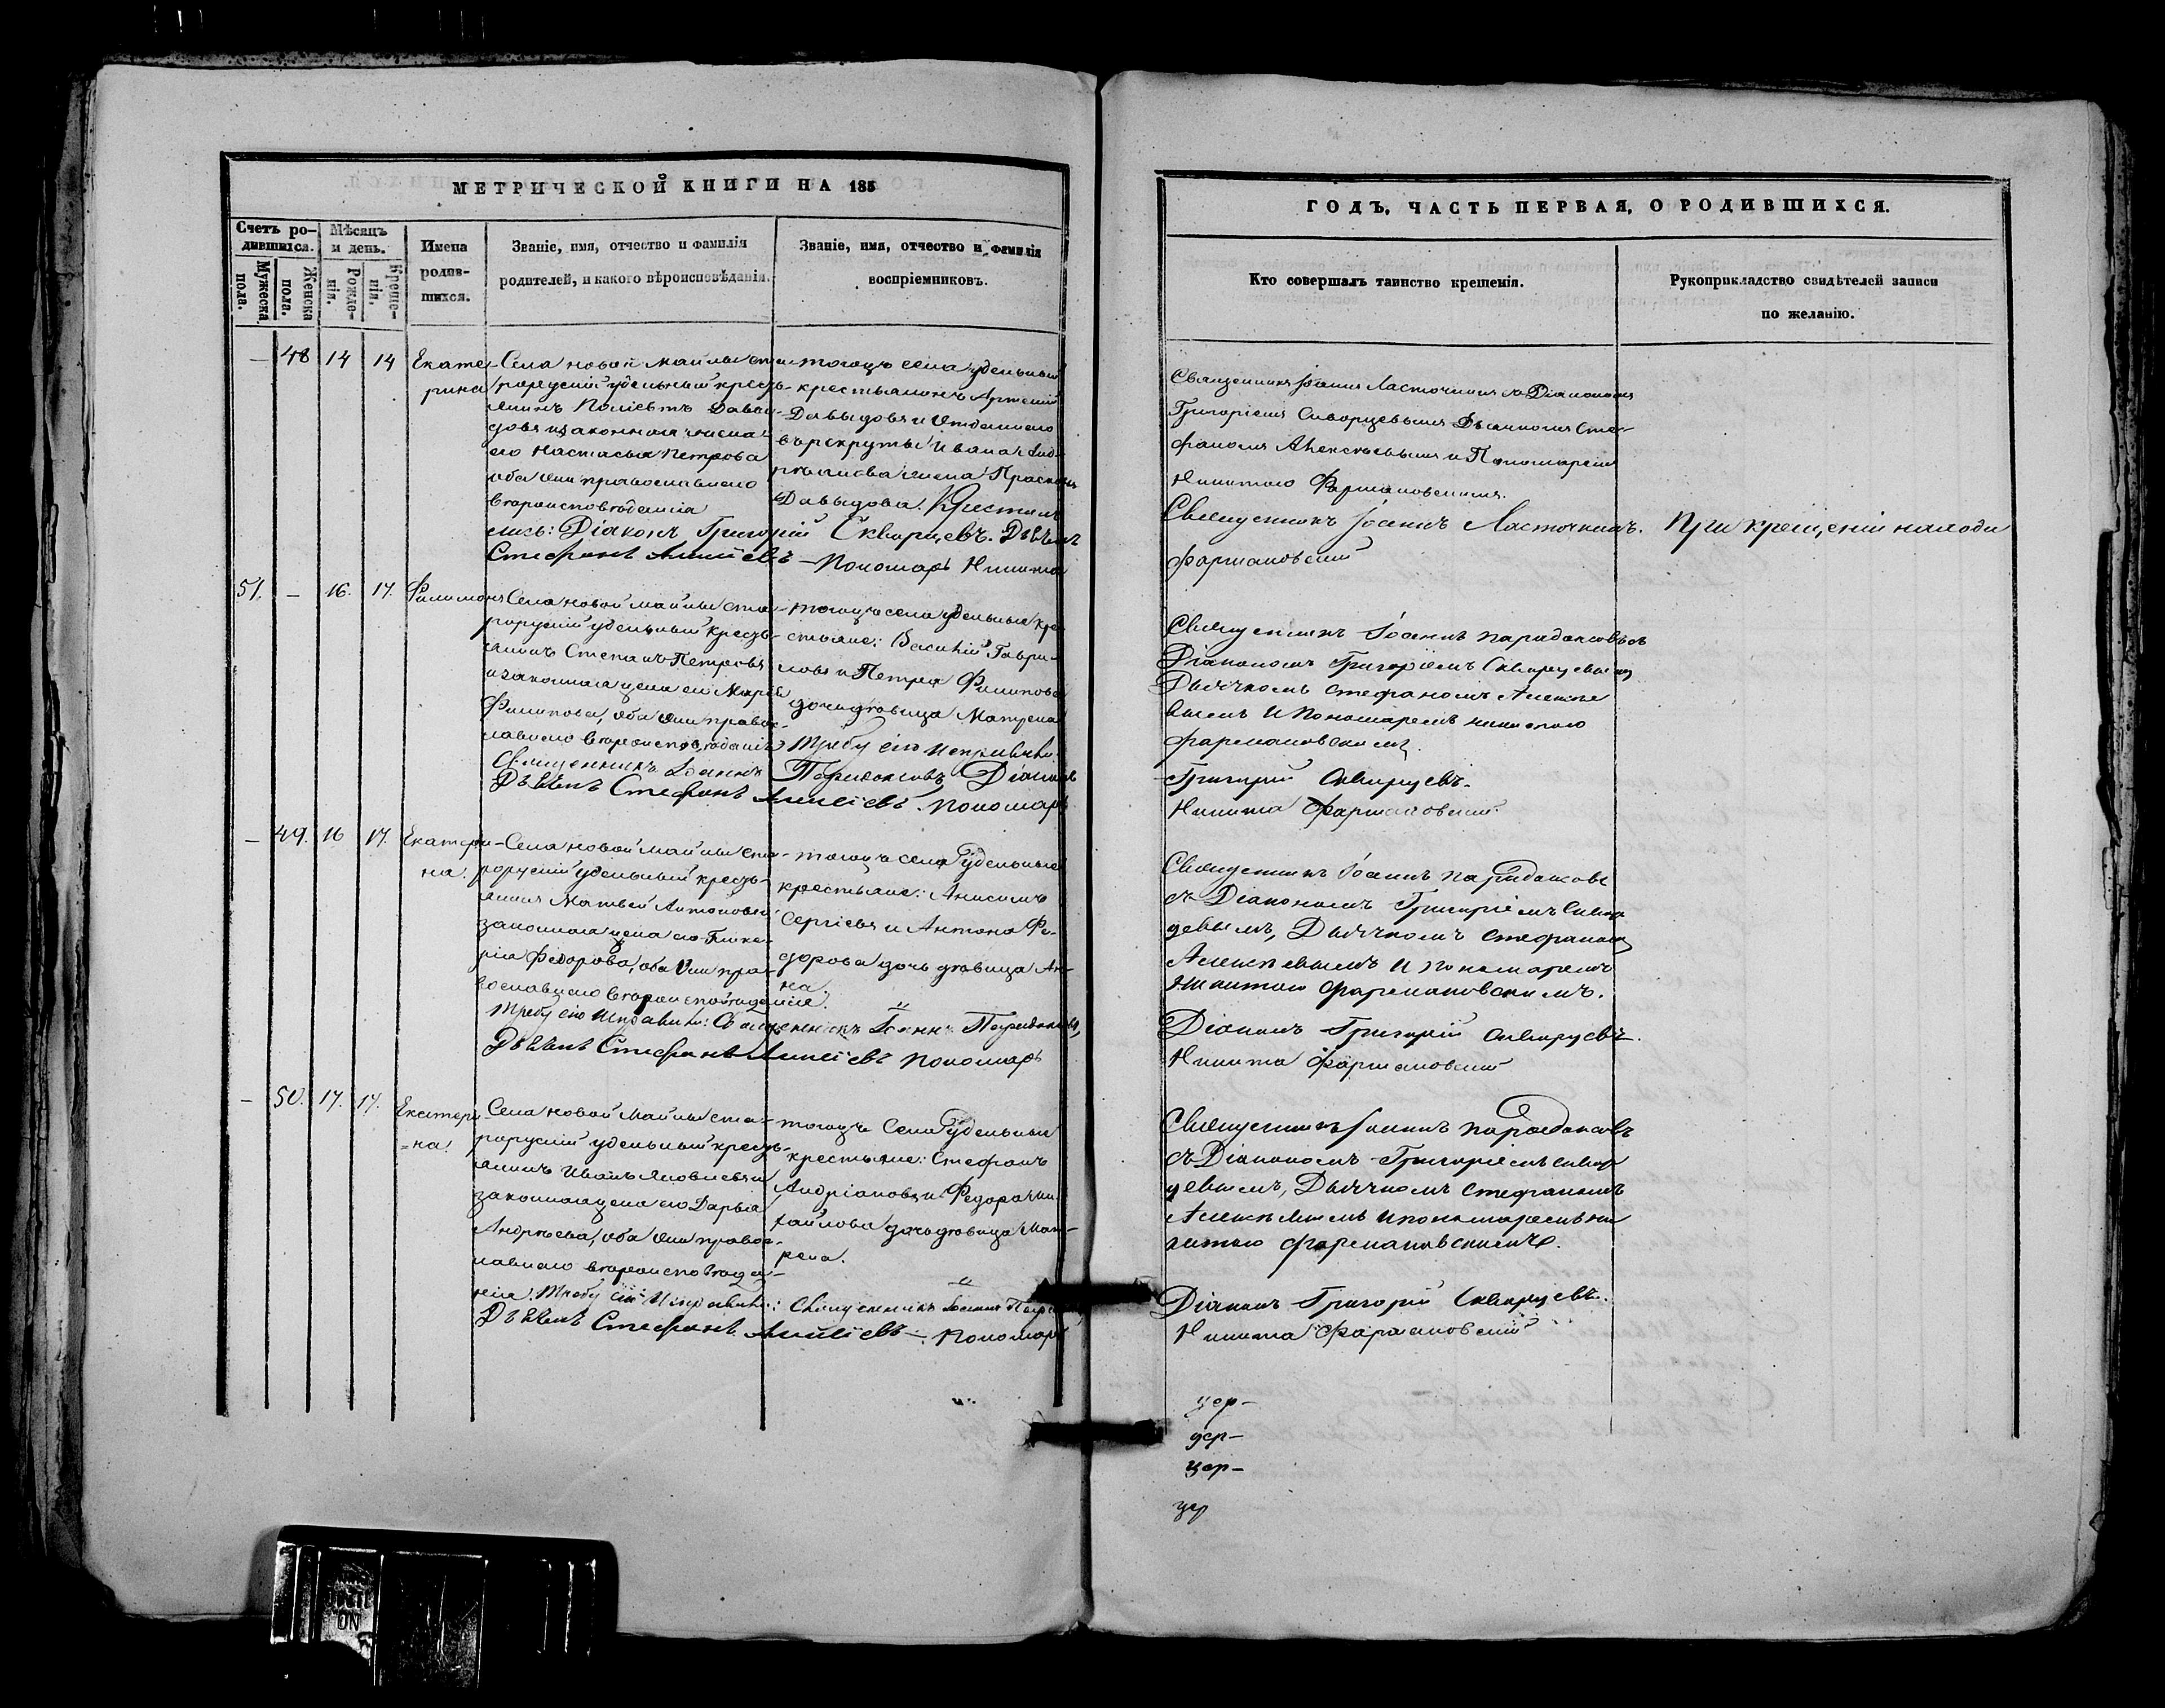 МЕТРИЧЕСКОЙ КНИГИ НА 185
Счетъ ро-
дившихся.
Мужеска
пола.
Женска
пола.
Мѣсяцъ
и день.
Рожде-
нія.
Креще-
нія.
Имена
родив-
шихся.
Званіе, имя, отчество и фамилія
родителей, и какого вѣроисповѣданія.
Званіе, имя, отчество и фамилія
воспріемниковъ.
— 48 14 14
Екате-
рина
Села новой майны ста
рорускій удельный кресть-
янинъ Давы-
довъ и законная жена
его Настасья Петрова
оба они православнаго
вѣроисповѣданія
тогожъ села удельный
крестьянинъ Артемій
Давыдовъ и Отданнаго
въ рекруты Ивана
жена
Давыдова. Крестили
Діаконъ Григорій Скворцевъ. Дьячекъ
Стефанъ — Пономарь Никита
51. — 16. 17.
Филимонъ
Села новой майны ста-
рорускій удельный кресть-
янинъ Степанъ Петровъ
и законная жена его
Филипова, оба они правос-
лавнаго вѣроисповѣданія
тогожъ села удельные кре
стьяне: Василій Гаври-
ловъ и Петра Филипова
дочь дѣвица Матрена
Требу сію исправляли
Священникъ Іоаннъ Парадоксовъ, Діаконъ
Дьячекъ Стефанъ Пономарь
— 49. 16 17.
Екатери-
на.
Села новой майны ста-
рорускій удельный кресть-
янинъ Матвей Антоновъ и
законная жена его Глике-
рія Федорова, оба они пра-
вославнаго вѣроисповѣданія.
тогожъ села удельные
крестьяне: Анисимъ
Сергіевъ и Антона Фе-
дорова дочь дѣвица Ан-
на.
Требу сію исправляли: Священникъ Іоаннъ Парадоксовъ,
Дьячекъ Стефанъ Пономарь
— 50. 17. 17.
Екатери
=на.
Села новой Майны ста-
рорускій удельный кресть-
янинъ Иванъ Яковлевъ и
законная жена его Дарья
Андреева, оба они правос-
лавнаго вѣроисповѣда-
нія. Требу сію исправляли: Священникъ Іоаннъ
тогожъ Села удельные
крестьяне: Стефанъ
Андріановъ и Федора Ми-
хайлова дочь дѣвица Мат-
рена.
Дьячекъ Стефанъ — Пономарь
ГОДЪ, ЧАСТЬ ПЕРВАЯ, О РОДИВШИХСЯ.
Кто совершалъ таинство крещенія.
Рукоприкладство свидѣтелей записи
по желанію.
Священникъ Іоаннъ Ласточкинъ съ Діакономъ
Григоріемъ Скворцевымъ Дьячкомъ Сте-
фаномъ Алексѣевымъ и Пономаремъ
Никитою Фармаковскимъ.
Священникъ Іоаннъ Ласточкинъ. При крещеніи находи
Фармаковскій
Священникъ Іоаннъ Парадоксовъ съ
Діакономъ Григоріемъ Скворцевымъ
Дьячкомъ Стефаномъ Алексѣе
вымъ и Пономаремъ Никитою
Фармаковскимъ.
Григорій Скворцевъ.
Никита Фармаковскій.
Священникъ Іоаннъ Парадоксовъ
съ Діакономъ Григоріемъ Сквор
цевымъ, Дьячкомъ Стефаномъ
Алексѣевымъ и пономаремъ
Никитою Фармаковскимъ.
Діаконъ Григорій Скворцевъ.
Никита Фармаковскій
Священникъ Іоаннъ Парадоксовъ
съ Діакономъ Григоріемъ Сквор
цевымъ, Дьячкомъ Стефаномъ
Алексѣевымъ и пономаремъ Ни
китою Фармаковскимъ.
Діаконъ Григорій Скворцевъ.
Никита Фармаковскій
цер—
цер—
цер—
цер